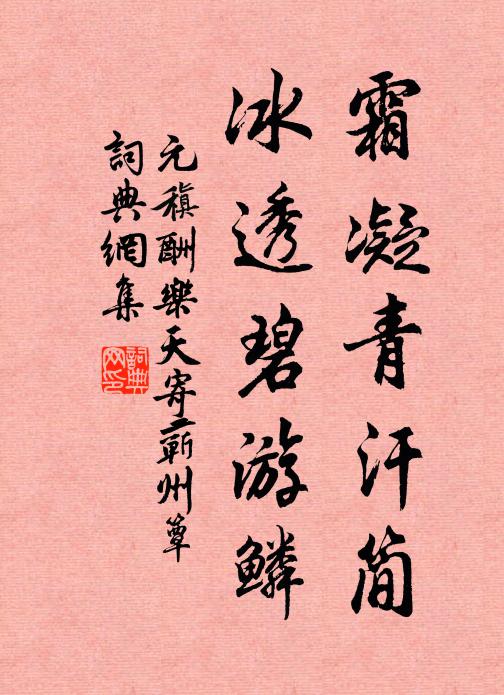 霜凝青汗简
冰透碧游鳞
元稹酬樂天寄蘄州簟
詞典網集
詞典网印